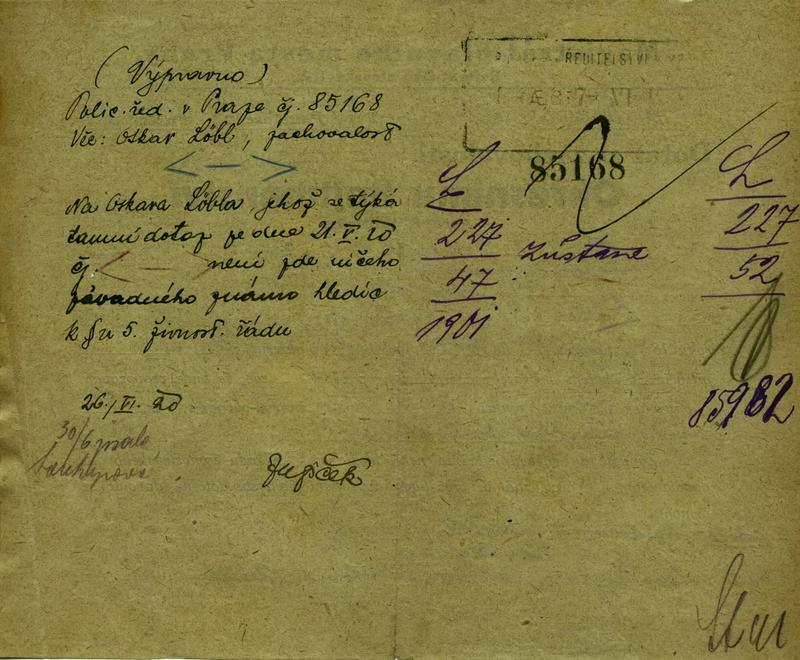 (Výpravno)
Polic. řed. v Praze čj. 85168
Věc: Oskar Löbl, zachovalost
Na Oskara Löbla, jehož se týká
tamní dotaz ze dne 21. VI. 20
čj. není zde ničeho
závadného známo hledíc
k §u 5. živnost. řádu
26./VI. 20
30/6 psala
ŘEDITELSTVÍ
85168
L
227
47
1901
zůstane
L
227
52
15982